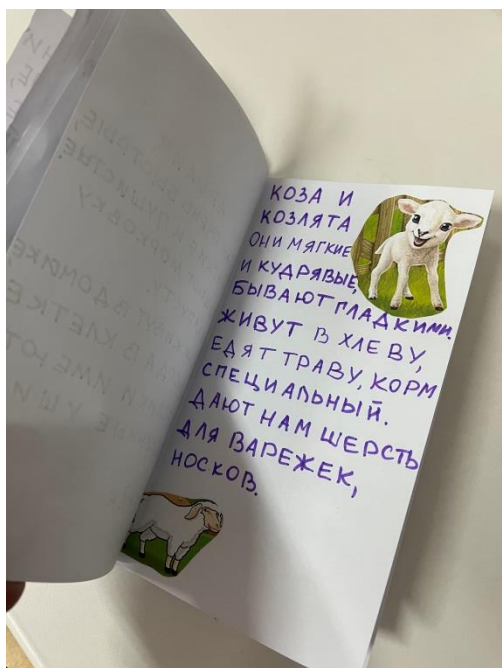 КОЗА И
КОЗЛЯТА
ОНИ МЯГКИЕ
И КУДРЯВЫЕ,
БЫВАЮТ ГЛАДКИМИ.
ЖИВУТ В ХЛЕВУ,
ЕДЯТ ТРАВУ, КОРМ
СПЕЦИАЛЬНЫЙ.
ДАЮТ НАМ ШЕРСТЬ
ДЛЯ ВАРЕЖЕК,
НОСКОВ.